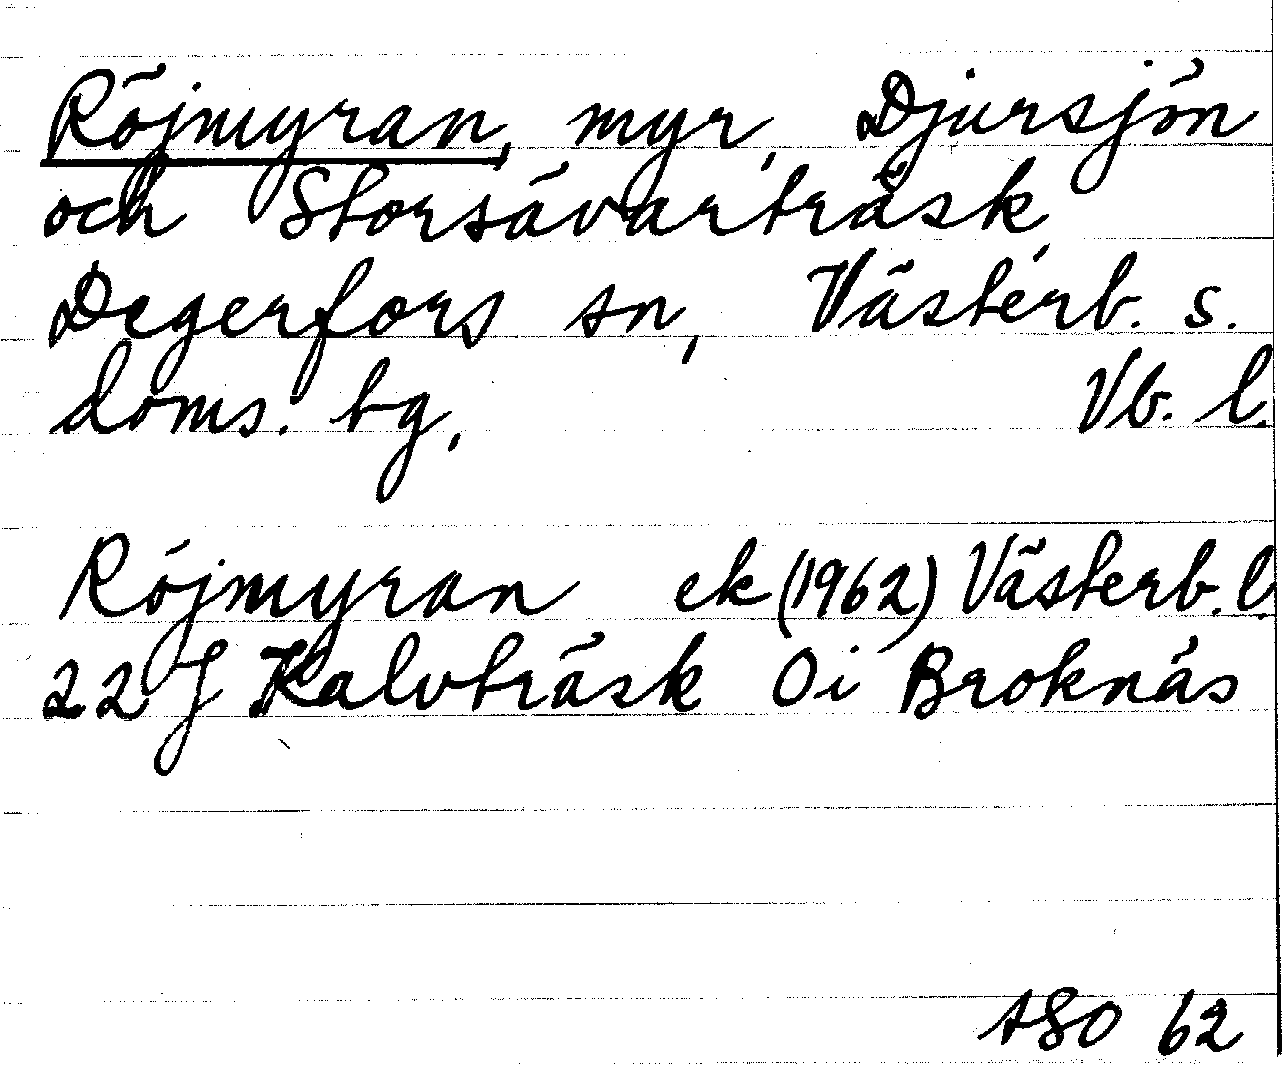 Röjmyran, myr, Djursjön
och Storsävarträsk,
Degerfors sn, Västerb. s.
doms. tg, Vb. l.
Röjmyran ek (1962) Västerb. l.
22 J Kalvträsk Oi Broknäs
ASO 62